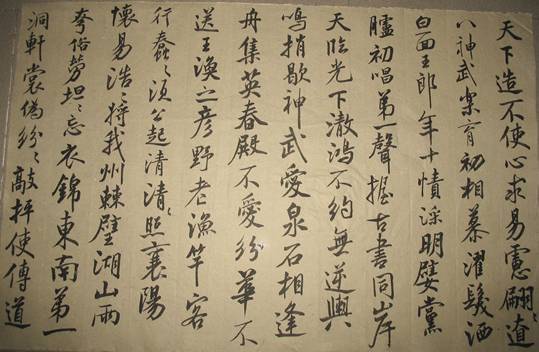 天下造不使心求易慮翩〻遊
八神武案育初相慕濯鬚洒
白面王郎年十憤深明嬖黨
臚初唱第一聲握古書同岸
天臨光下澈鴻不約無逆興
鳴捎歇神武愛泉石相逢
舟集英春殿不愛紛華不
送王渙之彦野老漁竿客
行蠢〻須公起清清〻照襄陽
懷易浩捋我州棘壁湖山兩
夸俗勞坦〻忘衣錦東南第一
洞軒裳偽紛〻敲抨使傳道